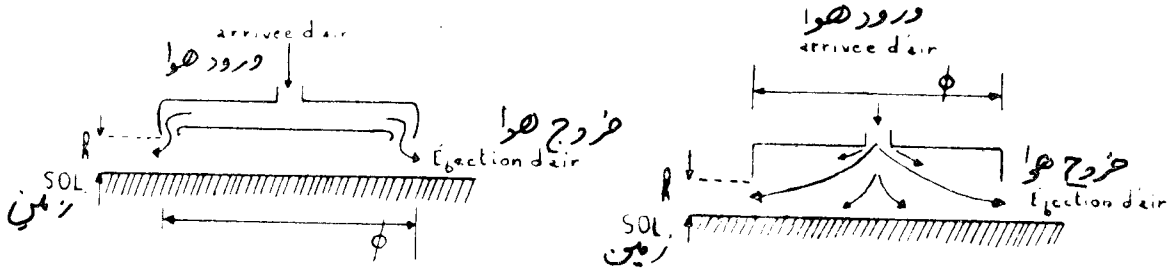 arrivee d'air
ورود هوا
خروج هوا
Ejection d'air
R
SOL.
زمین
φ
ورود هوا
arrivee d'air
φ
خروج هوا
Ejection d'air
R
SOL.
زمین